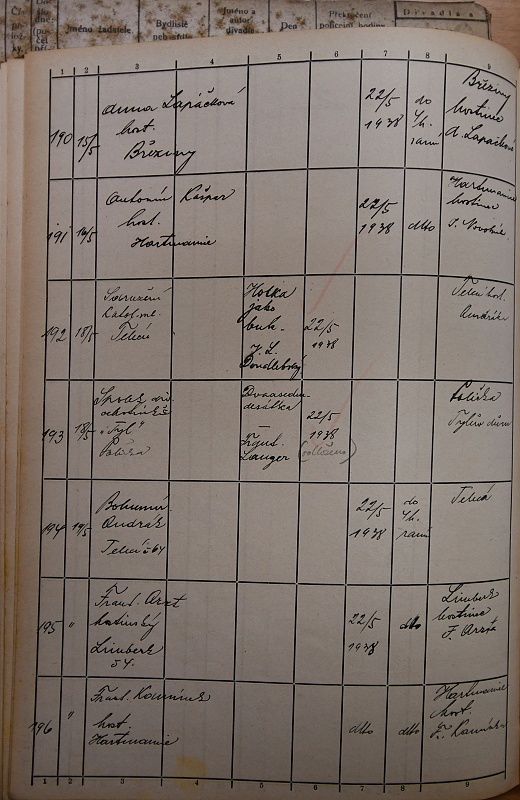 Jméno žadatele
Bydliště
Jméno a
autor
divadla
Den
Překročení
policejní hodiny
Divadla a
1 2 3 4 5 6 7 8 9
190 15/5 Anna Lapáčková
host.
Březiny
22/5
1938
do
4h.
ranní
Březiny
hostinec
A. Lapáčkové
191 16/5 Antonín Kašpar
host.
Hartmanic
22/5
1938
dtto
Hartmanic
hostinec
J. Novotné
192 18/5 Sdružení
katol. ml.
Telecí
Holka
jako
buk.
J. L.
22/5
1938
Telecí host.
Andrlík
193 18/5 Spolek div.
ochotníků
"Tyl"
Polička
Dvaasedm-
desátka
—
Frant.
Langer
22/5
1938
(odloženo)
Polička
Tylův dům
194 19/5 Bohumír
Telecí č 64
22/5
1938
do
4h.
ranní
Telecí
195 " Frant. Arzt
hostinský
Limberk
54.
22/5
1938
dtto
Limberk
hostinec
F. Arzta
196 " Frant. Kamínek
host.
Hartmanic
dtto
dtto
Hartmanic
host.
1 2 3 4 5 6 7 8 9